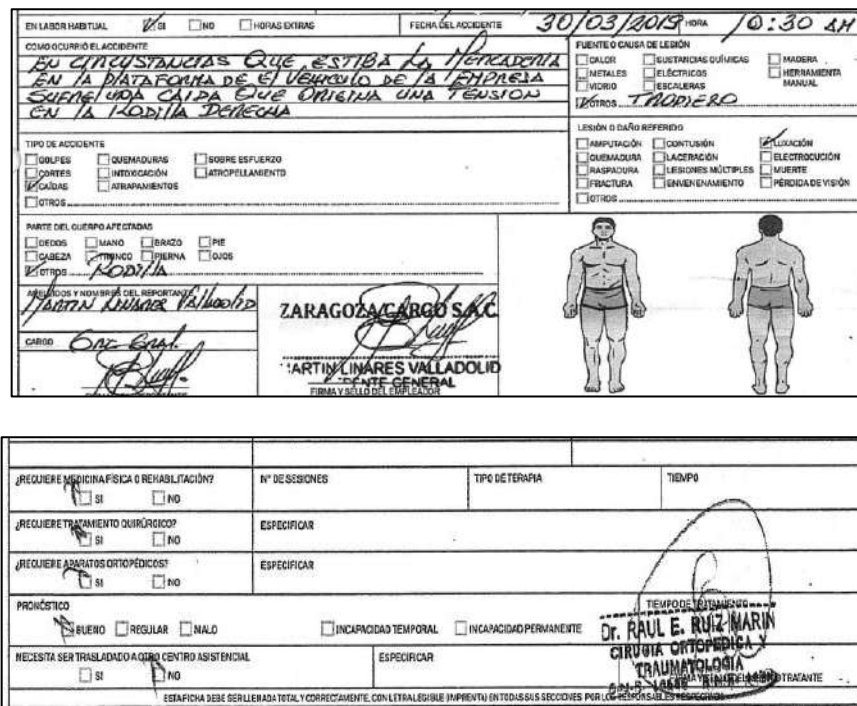 EN LABOR HABITUAL SI NO HORAS EXTRAS FECHA DEL ACCIDENTE 30/03/2019 HORA 10:30 AM
COMO OCURRIÓ EL ACCIDENTE
EN CIRCUSTANCIAS QUE ESTIBA LA MERCADERIA
EN LA PLATAFORMA DE EL VEHICULO DE LA EMPRESA
SUFRE UNA CAIDA QUE ORIGINA UNA TENSION
EN LA RODILLA DERECHA
FUENTE O CAUSA DE LESIÓN
CALOR SUSTANCIAS QUÍMICAS MADERA
METALES ELÉCTRICOS HERRAMIENTA MANUAL
VIDRIO ESCALERAS
OTROS
TIPO DE ACCIDENTE
GOLPES QUEMADURAS SOBRE ESFUERZO
CORTES INTOXICACIÓN ATROPELLAMIENTO
CAÍDAS ATRAPAMIENTOS
OTROS
LESIÓN O DAÑO REFERIDO
AMPUTACIÓN CONTUSIÓN LUXACIÓN
QUEMADURA LACERACIÓN ELECTROCUCIÓN
RASPADURA LESIONES MÚLTIPLES MUERTE
FRACTURA ENVENENAMIENTO PÉRDIDA DE VISIÓN
OTROS
PARTE DEL CUERPO AFECTADAS
DEDOS MANO BRAZO PIE
CABEZA TRONCO PIERNA OJOS
OTROS RODILLA
APELLIDOS Y NOMBRES DEL REPORTANTE
MARTIN LINARES VALLADOLID
CARGO
ZARAGOZA CARGO S.A.C.
MARTIN LINARES VALLADOLID
GENERAL
FIRMA Y SELLO DEL EMPLEADOR
¿REQUIERE MEDICINA FÍSICA O REHABILITACIÓN? N° DE SESIONES TIPO DE TERAPIA TIEMPO
SI NO
¿REQUIERE TRATAMIENTO QUIRÚRGICO? ESPECIFICAR
SI NO
¿REQUIERE APARATOS ORTOPÉDICOS? ESPECIFICAR
SI NO
PRONÓSTICO TIEMPO DE TRATAMIENTO
BUENO REGULAR MALO INCAPACIDAD TEMPORAL INCAPACIDAD PERMANENTE
Dr. RAUL E. RUIZ MARIN
CIRUGIA ORTOPEDICA Y
TRAUMATOLOGIA
NECESITA SER TRASLADADO A OTRO CENTRO ASISTENCIAL ESPECIFICAR
SI NO TRATANTE
ESTA FICHA DEBE SER LLENADA TOTAL Y CORRECTAMENTE, CON LETRA LEGIBLE (IMPRENTA) EN TODAS SUS SECCIONES POR LOS RESPONSABLES